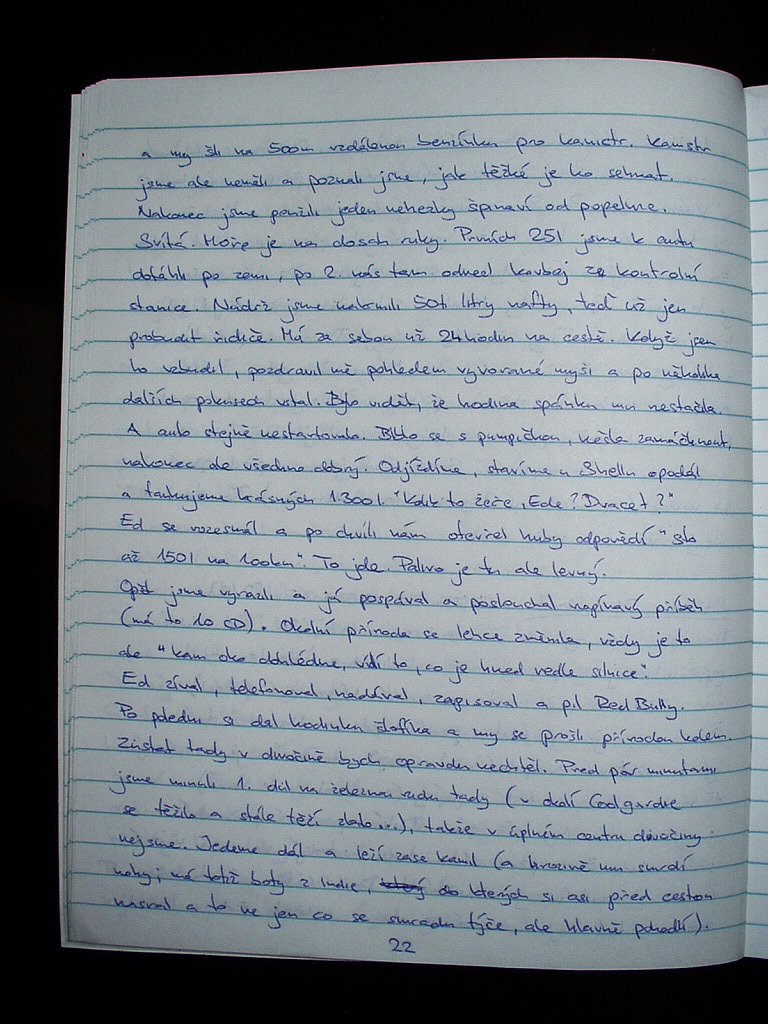 a my šli na 500m vzdálenou benzínku pro kanistr. Kanystr
jsme ale neměli a poznali jsme, jak těžké je ho sehnat.
Nakonec jsme použili jeden nehezky špinaví od popelnice.
Svítá. Moře je na dosah ruky. Prvních 25l jsme k autu
dotáhli po zemi, po 2. nás tam odvezl kovboj ze kontrolní
stanice. Nádrž jsme nakrmili 50ti litry nafty, teď už jen
probudit řidiče. Má za sebou už 24 hodin na cestě. Když jsem
ho vzbudil, pozdravil mě pohledem vyvorané myši a po několika
dalších pokusech vstal. Bylo vidět, že hodina spánku mu nestačila.
A auto stejně nestartovalo. Blblo se s pumpičkou, něšla zamáčknout,
nakonec ale všechno dobrý. Odjíždíme, stavíme u Shellu opodál
a tankujeme krásných 1.300l. "Kolik to žeře, Ede? Dvacet?"
Ed se rozesmál a po chvíli nám otevřel huby odpovědí "Sto
až 150l na 100km". To jde. Palivo je tu ale levný.
Opět jsme vyrazili a já pospával a poslouchal napínavý příběh
(má to 10 CD). Okolní příroda se lehce změnila, vždy je to
ale "kam oko dohlédne, vidí to, co je hned vedle silnice".
Ed zíval, telefonoval, nadával, zapisoval a pil Red Bully.
Po poledni si dal hodinku šlofíka a my se prošli přírodou kolem.
Zůstat tady v divočině bych opravdu nechtěl. Před pár minutami
jsme minuli 1. důl na železnou rudu tady (v okolí Coolgardie
se těžilo a stále těží zlato...), takže v úplném centru divočiny
nejsme. Jedeme dál a leží zase Kamil (a hrozivě mu smrdí
nohy; má totiž boty z Indie, do kterých si asi před cestou
nasral a to ne jen co se smradu týče, ale hlavně pohodlí).
22